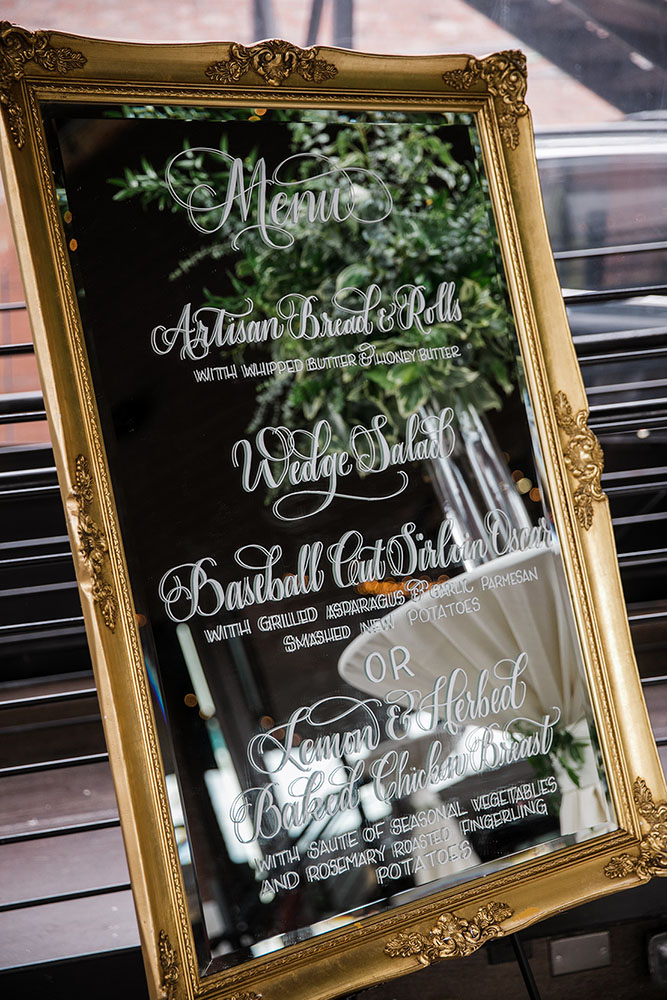 Menu
Artisan Bread & Rolls
WITH WHIPPED BUTTER & HONEY BUTTER
Wedge Salad
Baseball Cut Sirloin Oscar
WITH GRILLED ASPARAGUS & GARLIC PARMESAN
SMASHED NEW POTATOES
OR
Lemon & Herbed
Baked Chicken Breast
WITH SAUTE OF SEASONAL VEGETABLES
AND ROSEMARY ROASTED FINGERLING
POTATOES